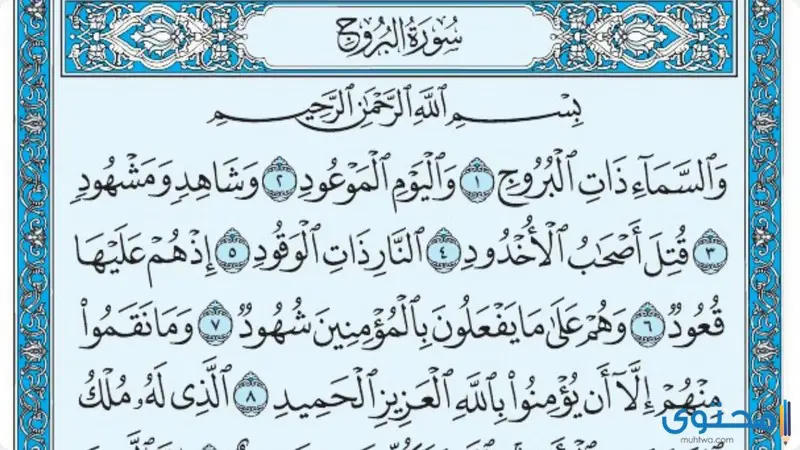 سُورَةُ البُرُوجِ
بِسْمِ اللَّهِ الرَّحْمَٰنِ الرَّحِيمِ
وَٱلسَّمَآءِ ذَاتِ ٱلْبُرُوجِ ١ وَٱلْيَوْمِ ٱلْمَوْعُودِ ٢ وَشَاهِدٍ وَمَشْهُودٍ
٣ قُتِلَ أَصْحَٰبُ ٱلْأُخْدُودِ ٤ ٱلنَّارِ ذَاتِ ٱلْوَقُودِ ٥ إِذْ هُمْ عَلَيْهَا
قُعُودٌ ٦ وَهُمْ عَلَىٰ مَا يَفْعَلُونَ بِٱلْمُؤْمِنِينَ شُهُودٌ ٧ وَمَا نَقَمُوا۟
مِنْهُمْ إِلَّآ أَن يُؤْمِنُوا۟ بِٱللَّهِ ٱلْعَزِيزِ ٱلْحَمِيدِ ٨ ٱلَّذِى لَهُۥ مُلْكُ
محتوى
muhtwa.com